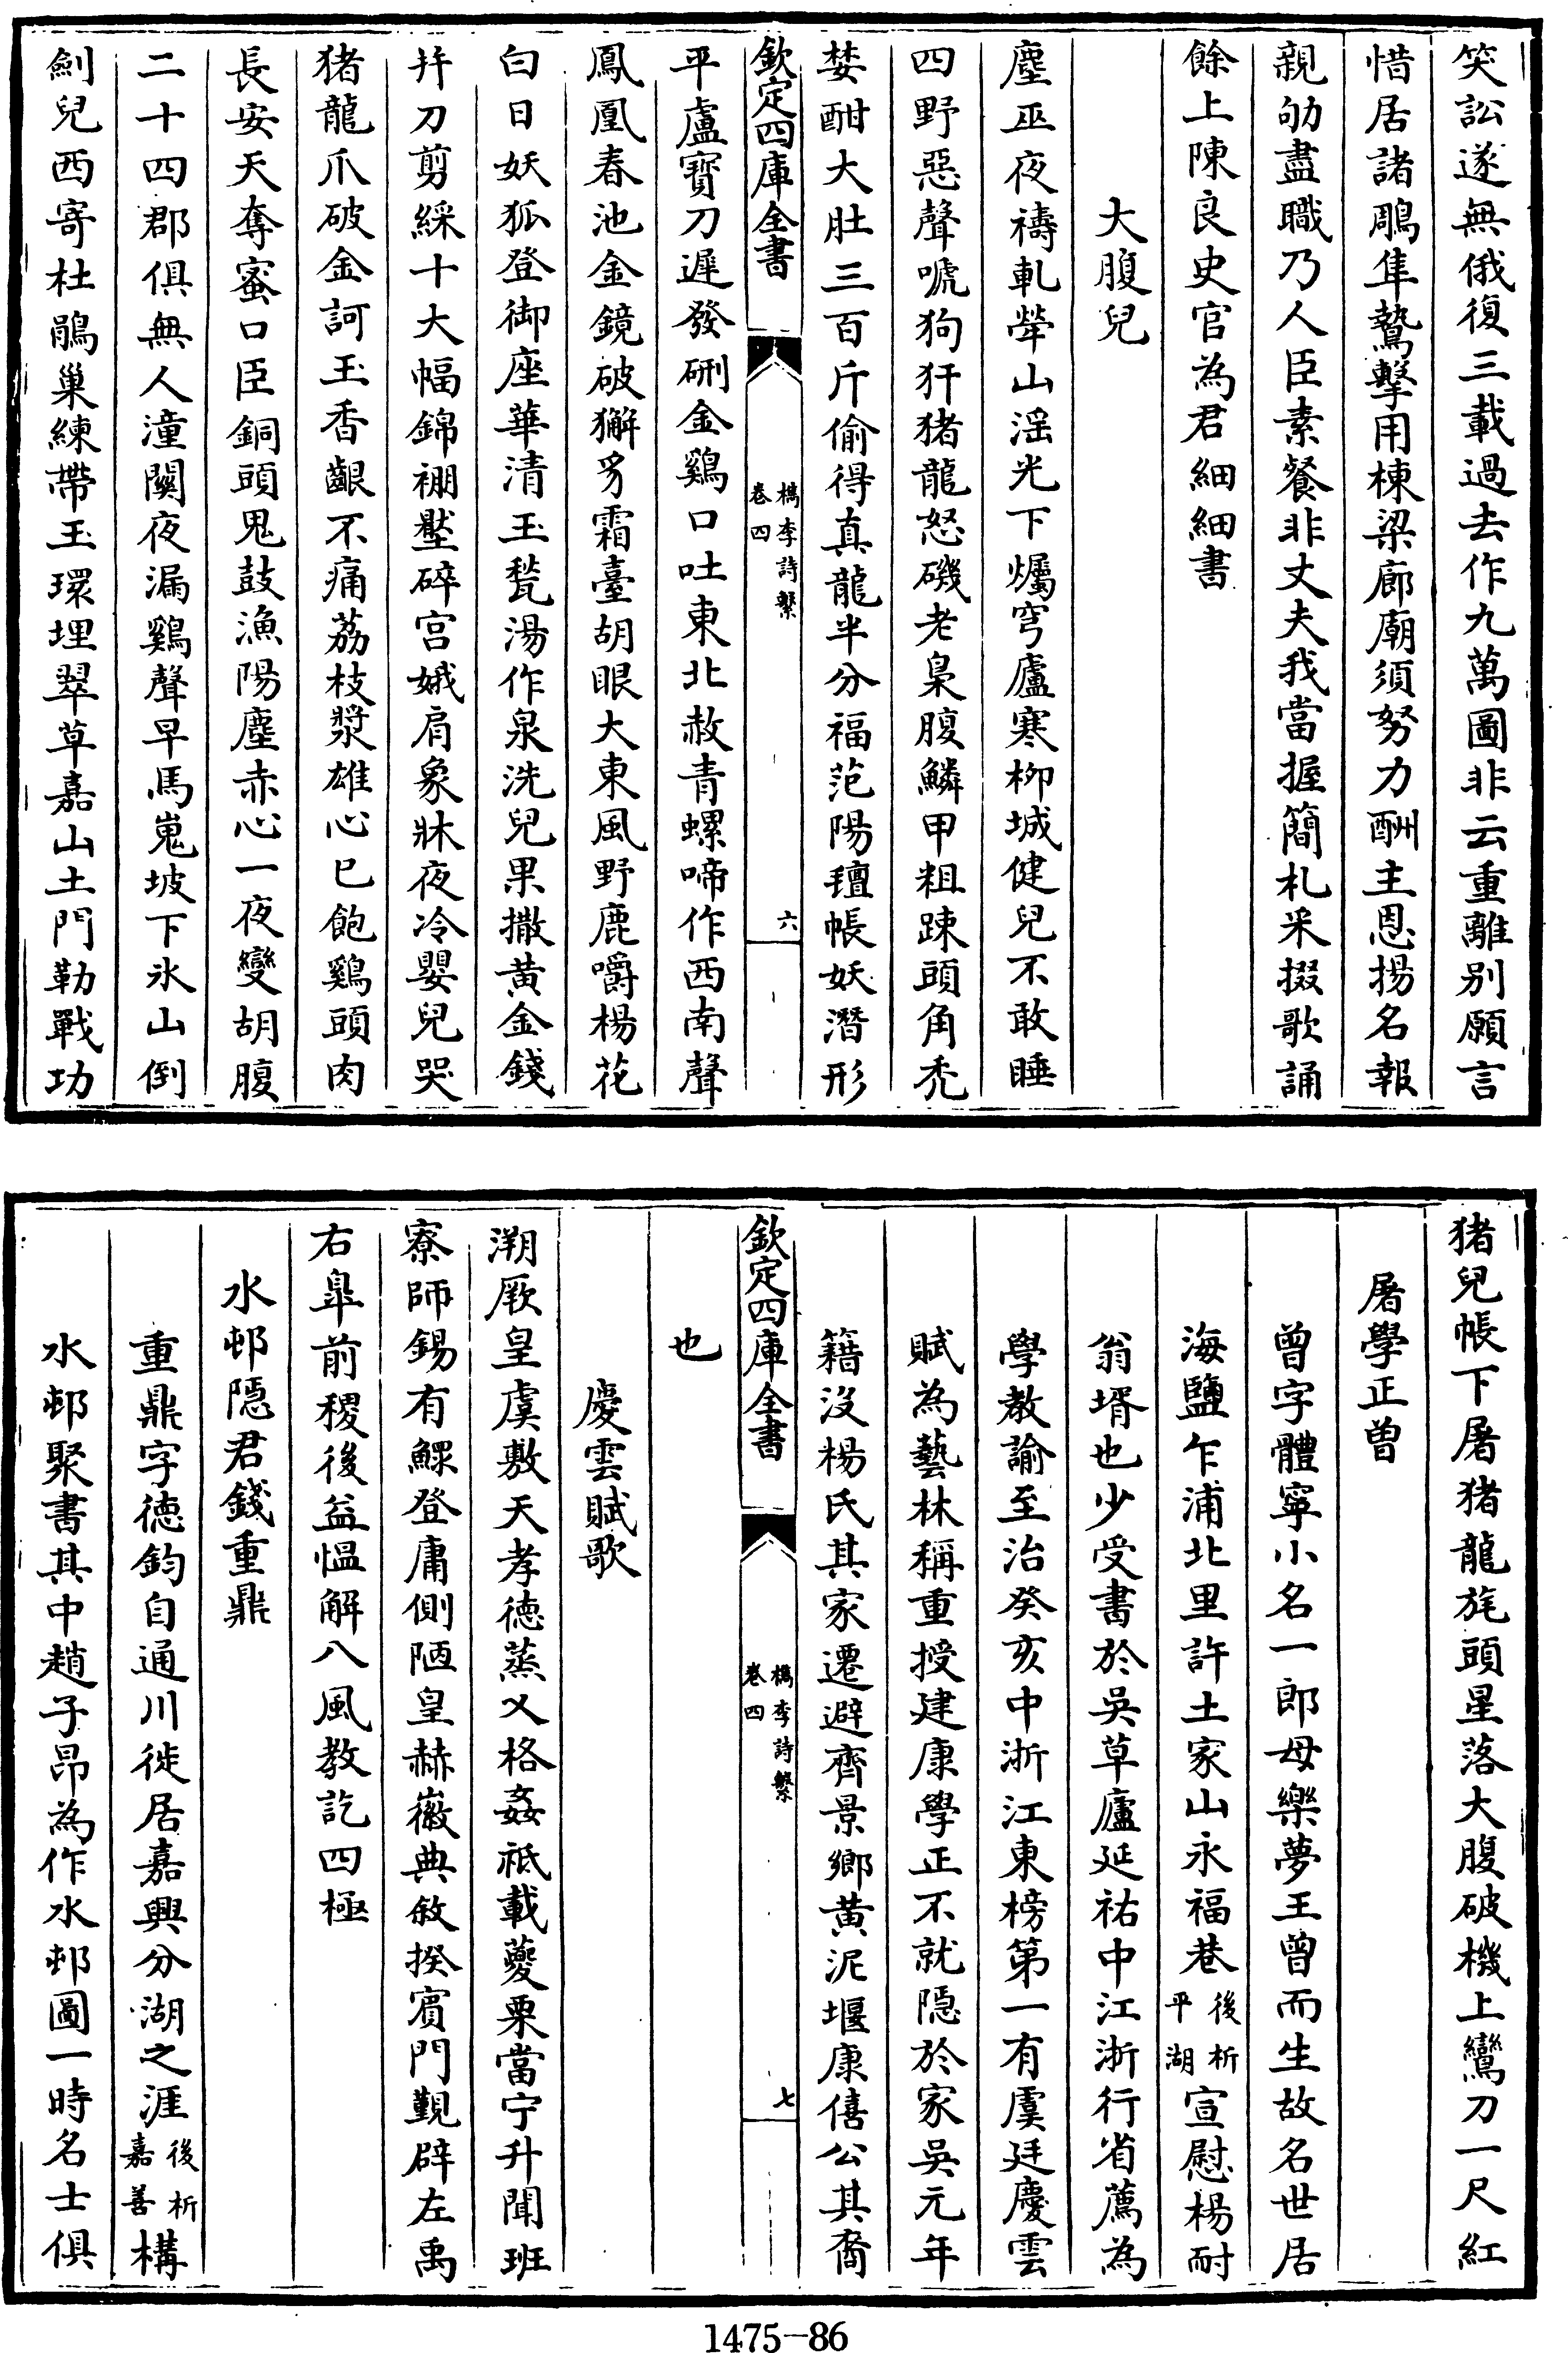 笑訟遂無俄復三載過去作九萬圖非云重離别願言
惜居諸鵰隼鷙擊用棟梁廊廟須努力酬主恩揚名報
親劬盡職乃人臣素餐非丈夫我當握簡札采掇歌誦
餘上陳良史官為君細細書
大腹兒
塵巫夜禱軋犖山滛光下燭穹廬寒栁城健兒不敢睡
四野惡聲唬狗犴猪龍怒磯老梟腹鱗甲粗踈頭角禿
婪酣大肚三百斤偷得真龍半分福范陽氊帳妖潛形
欽定四庫全書
檇李詩繫
卷四
六
平盧寶刀遲發硎金鷄口吐東北赦青螺啼作西南聲
鳳凰春池金鏡破獬豸霜臺胡眼大東風野鹿嚼楊花
白日妖狐登御座華清玉甃湯作泉洗兒果撒黄金錢
幷刀剪綵十大幅錦棚壓碎宫娥肩象牀夜冷嬰兒哭
猪龍爪破金訶玉香齦不痛荔枝漿雄心已飽鷄頭肉
長安天奪蜜口臣銅頭鬼鼓漁陽塵赤心一夜變胡腹
二十四郡俱無人潼關夜漏鷄聲早馬嵬坡下氷山倒
劍兒西寄杜鵑巢練帶玉環埋翠草嘉山土門勒戰功
猪兒帳下屠猪龍旄頭星落大腹破機上鸞刀一尺紅
屠學正曾
曾字體寧小名一郎母樂夢王曾而生故名世居
海鹽乍浦北里許土家山永福巷後析平湖宣慰楊耐
翁壻也少受書於吳草廬延祐中江浙行省薦為
學教諭至治癸亥中浙江東榜第一有虞廷慶雲
賦為藝林稱重授建康學正不就隠於家吳元年
籍沒楊氏其家遷避齊景鄉黄泥堰康僖公其裔
欽定四庫全書
檇李詩繫
卷四
七
也
慶雲賦歌
溯厥皇虞敷天孝徳蒸乂格姦祗載夔栗當宁升聞班
寮師錫有鰥登庸側陋皇赫徽典敘揆賓門覲辟左禹
右臯前稷後益愠解八風教訖四極
水邨隠君錢重鼎
重鼎字徳鈞自通川徙居嘉興分湖之涯後析嘉善構
水邨聚書其中趙子昂為作水邨圖一時名士俱
1475-86